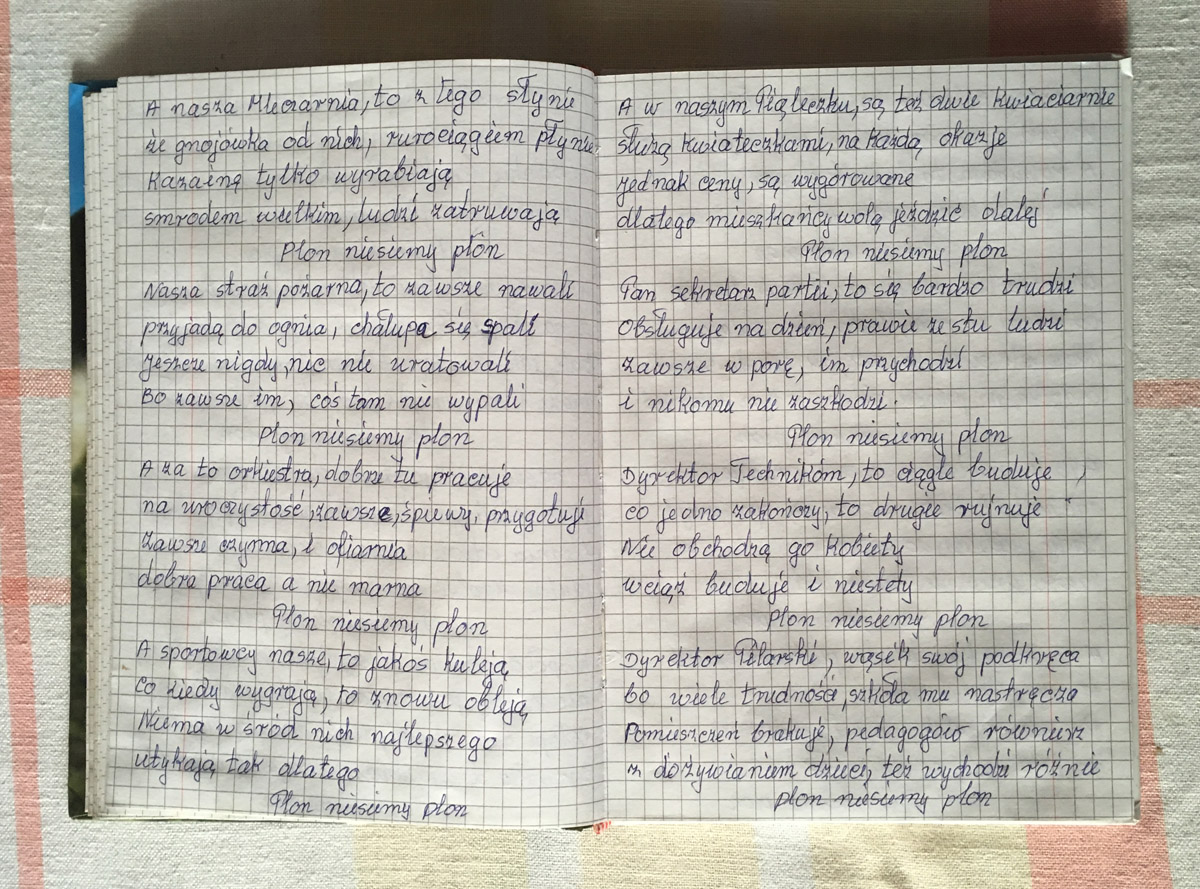 A nasza Mleczarnia, to z tego słynie
że gnojówka od nich, rurociągiem płynie
Kazainę tylko wyrabiają
smrodem wielkim, ludzi zatruwają
Plon niesiemy plon
Nasza straż pożarna, to zawsze nawali
przyjadą do ognia, chałupa się spali
jeszcze nigdy, nic nie uratowali
Bo zawsze im, coś tam nie wypali
Plon niesiemy plon
A za to orkiestra, dobrze tu pracuje
na uroczystość, zawsze, śpiewy, przygotuje
zawsze czynna, i ofiarnia
dobra praca a nie marna
Plon niesiemy plon
A sportowcy nasze, to jakoś kuleją
co kiedy wygrają, to znowu obleją
Niema w śród nich najlepszego
utykają tak dlatego
Plon niesiemy plon
A w naszym Piąteczku, są też dwie kwiaciarnie
służą kwiateczkami, na każdą okazje
jednak ceny, są wygórowane
dlatego mieszkańcy wolą jeździć dalej
Plon niesiemy plon
Pan sekretarz partei, to się bardzo trudzi
obsługuje na dzień, prawie ze stu ludzi
zawsze w porę, im przychodzi
i nikomu nie zaszkodzi.
Plon niesiemy plon
Dyrektor Technikóm, to ciągle buduje
co jedno zakończy, to drugie rujnuje
Nie obchodzą go kobiety
wciąż buduje i niestety
Plon niesiemy plon
Dyrektor Pilarski, wąsik swój podkręca
bo wiele trudności, szkoła mu nastręcza
Pomieszczeń brakuje, pedagogów równierz
z dożywianiem dzieci, też wychodzi różnie
plon niesiemy plon